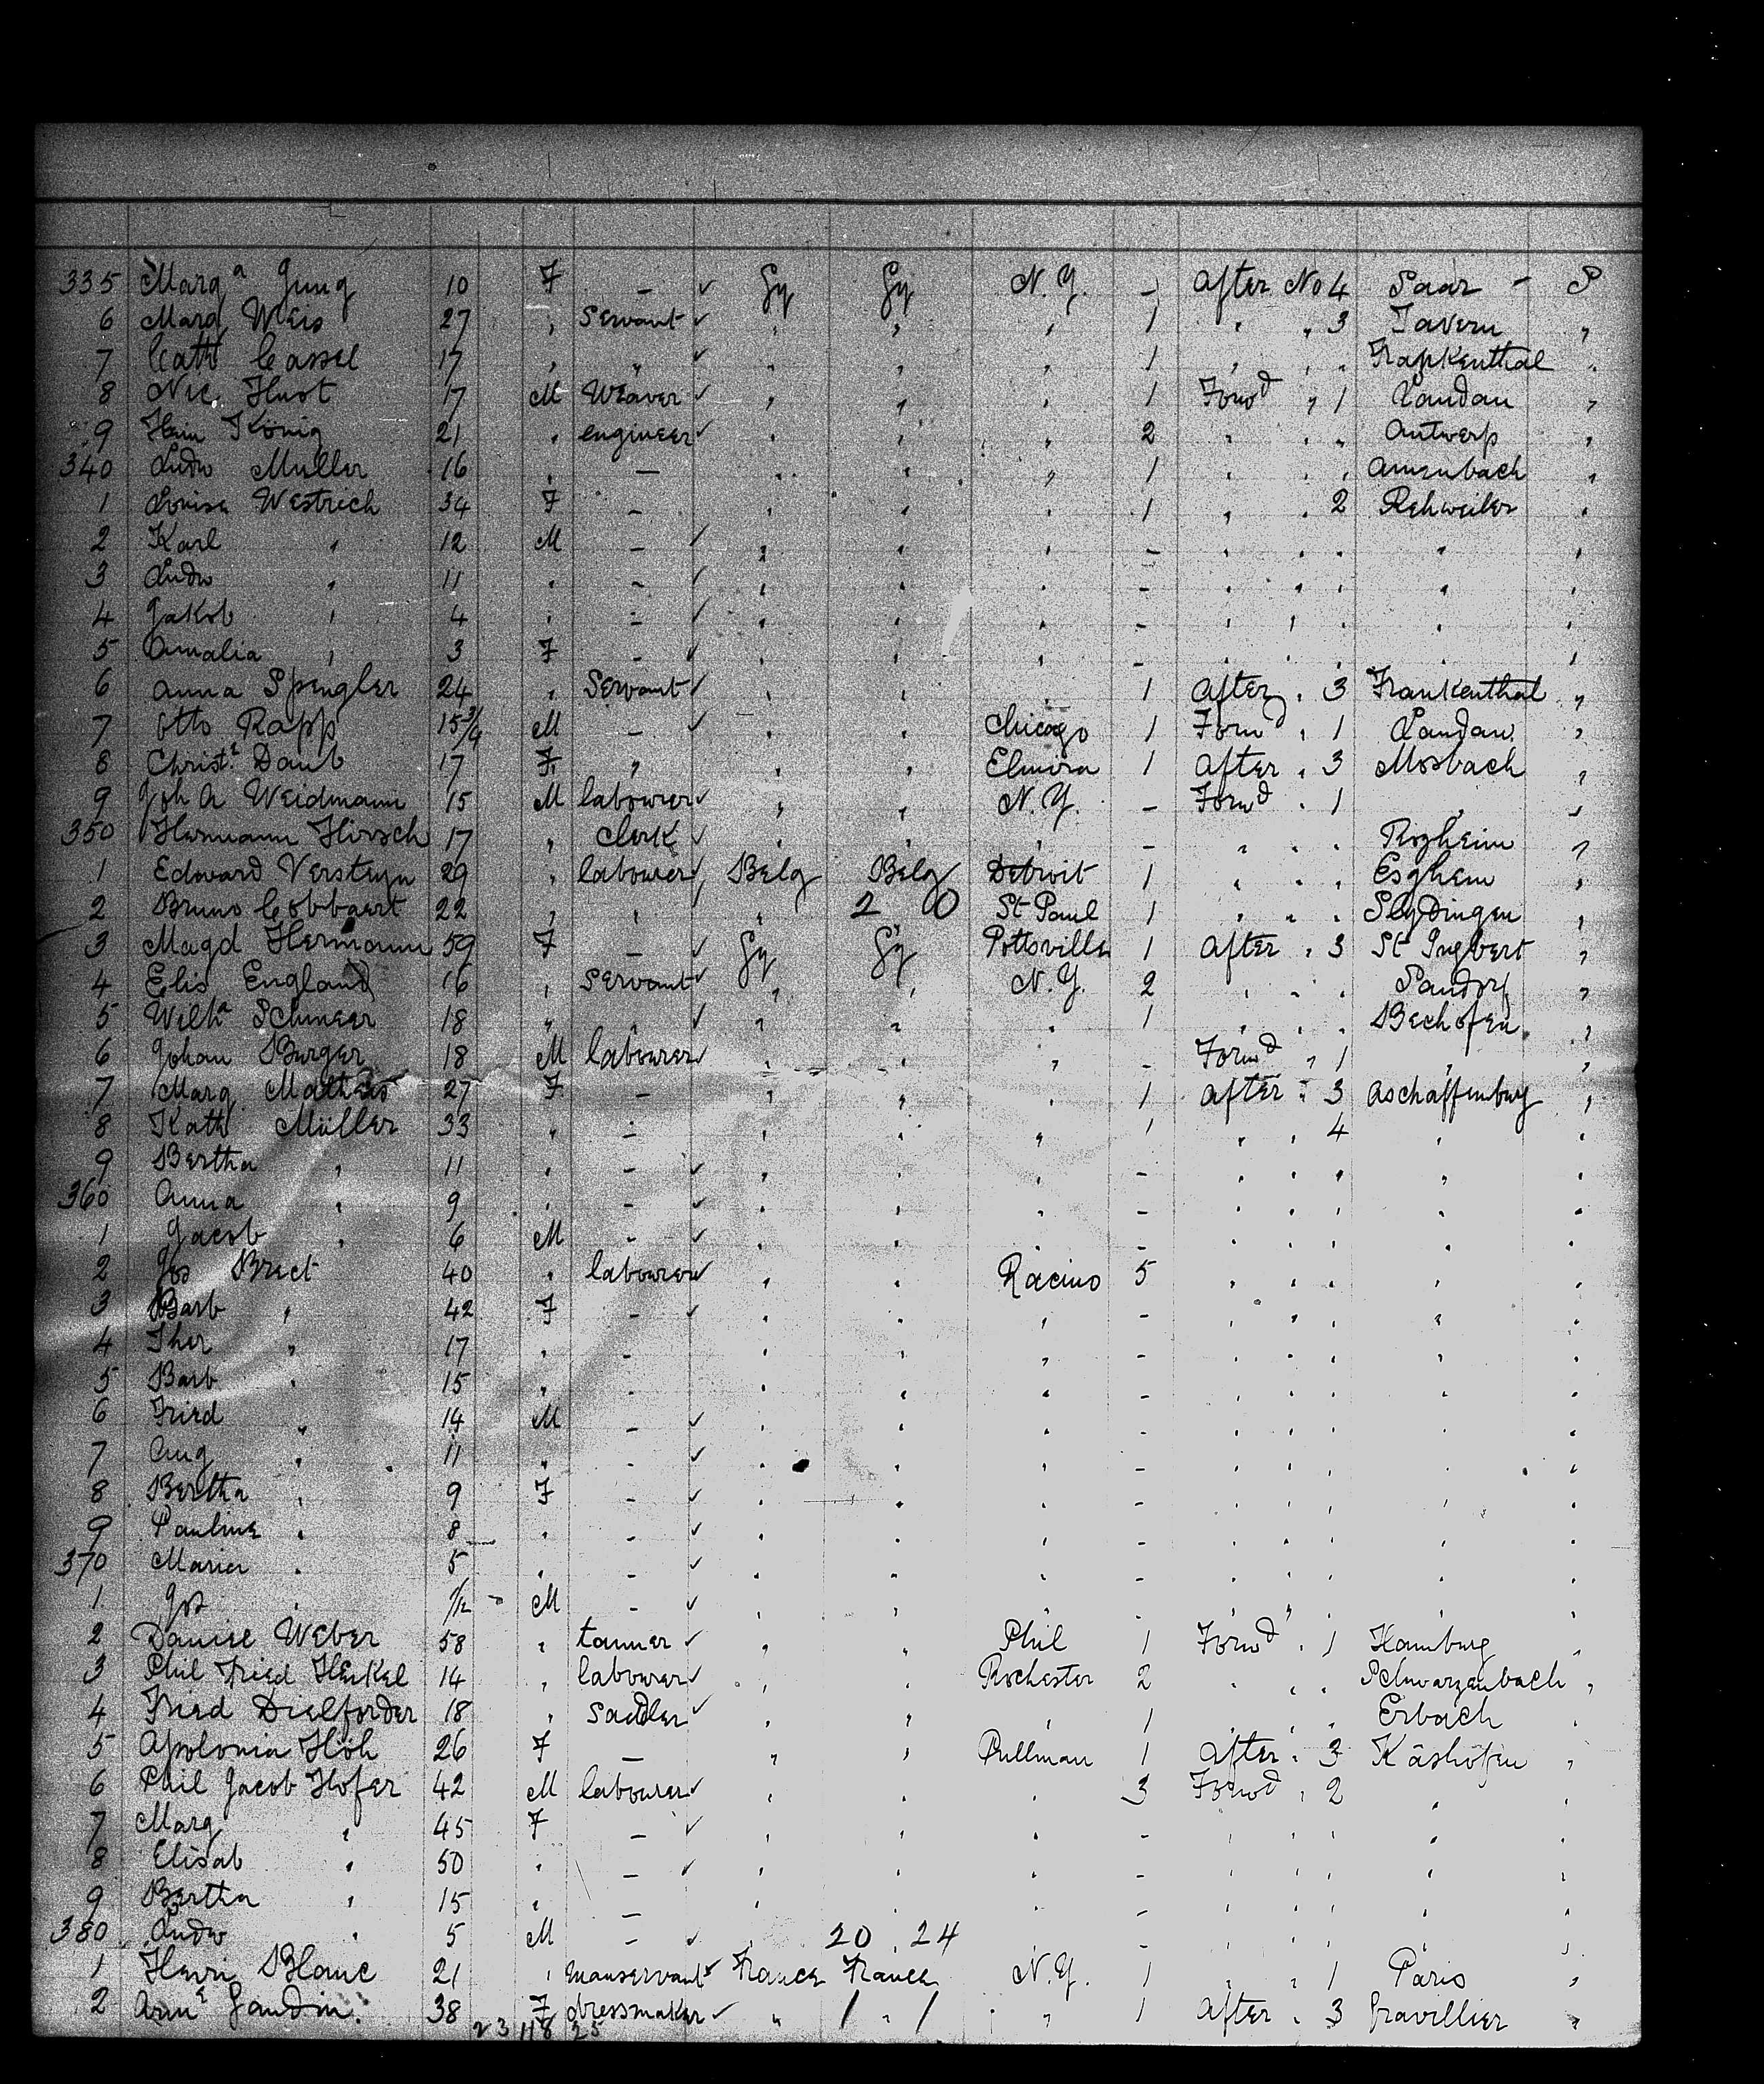 335 Marg a Jung 10 F – ✓ Gy Gy N.Y. – After No 4 Saar – S
6 Marg Weis 27 " Servant ✓ " " " 1 " " 3 Tavern "
7 Cath Cassel 17 " " ✓ " " " 1 " " " Frankenthal "
8 Nic. Hust 17 M Weaver ✓ " " " 1 Forwd " 1 Landau "
9 Hein König 21 " engineer ✓ " " " 2 " " " Antwerp "
340 Ludw Muller 16 " – " " " 1 " " " "
1 Louise Westrich 34 F – " " " 1 " " 2 Rehweiler "
2 Karl " 12 M – ✓ " " " – " " " " "
3 Ludw " 11 " – ✓ " " " – " " " " "
4 Jakob " 4 " – ✓ " " " – " " " " "
5 Amalia " 3 F – ✓ " " " – " " " " "
6 Anna Spengler 24 " Servant ✓ " " " 1 After " 3 Frankenthal "
7 Otto Rapp 15 3/4 M – ✓ " " Chicago 1 Forwd " 1 Landau "
8 Christ. Daub 17 F " " " Elmira 1 After " 3 Mosbach "
9 Joh A Weidmann 15 M labourer ✓ " " N.Y. – Forwd " 1 " "
350 Hermann Hirsch 17 " Clerk ✓ " " " – " " " Roxheim "
1 Edward Versteyn 29 " labourer ✓ Belg Belg Detroit 1 " " " Esghem "
2 Bruno Cobbaert 22 " " " 2 0 St Paul 1 " " " Slydingen "
3 Magd Hermann 59 F – ✓ Gy Gy Pottsville 1 After " 3 St Ingbert "
4 Elis England 16 " Servant ✓ " " N.Y. 2 " " " Sandorf "
5 Wilh a Schmeer 18 " " ✓ " " " 1 " " " Bechofen "
6 Johan Burger 18 M labourer ✓ " " " – Forwd " 1 " "
7 Marg Mathes 27 F – " " " 1 After " 3 Aschaffenburg "
8 Kath Müller 33 " – " " " 1 " " 4 " "
9 Bertha " 11 " – ✓ " " " – " " " " "
360 Anna " 9 " – ✓ " " " – " " " " "
1 Jacob " 6 M – ✓ " " " – " " " " "
2 Jos Brect 40 " labourer ✓ " " Racino 5 " " " " "
3 Barb " 42 F – ✓ " " " – " " " " "
4 Ther " 17 " – " " " – " " " " "
5 Barb " 15 " – " " " – " " " " "
6 Fried " 14 M – ✓ " " " – " " " " "
7 Aug " 11 " – ✓ " " " – " " " " "
8 Bertha " 9 F – ✓ " " " – " " " " "
9 Pauline " 8 " – ✓ " " " – " " " " "
370 Maria " 5 " – ✓ " " " – " " " " "
1 Jos " /12 – M – ✓ " " " – " " " " "
2 Daniel Weber 58 " tanner ✓ " " Phil 1 Forwd " 1 Hamburg "
3 Phil Fried Henkel 14 " labourer ✓ " " Rochester 2 " " " Schwarzenbach "
4 Fried Dielforder 18 " Sadler ✓ " " " 1 " " " Erbach "
5 Apolonia Höh 26 F – " " Pullman 1 After " 3 Käshöfen "
6 Phil Jacob Hofer 42 M labourer ✓ " " " 3 Forwd " 2 " "
7 Marg " 45 F – ✓ " " " – " " " " "
8 Elisab " 50 " – ✓ " " " – " " " " "
9 Bertha " 15 " – " " " – " " " " "
380 Ludw " 5 M – ✓ 20 . 24 " – " " " " "
1 Henri Blanc 21 " manservant ✓ France France N.Y. 1 " " 1 Paris "
2 Gaudin. 38 F dressmaker ✓ " 1 " 1 " 1 After " 3 Gravillier "
23 118 25